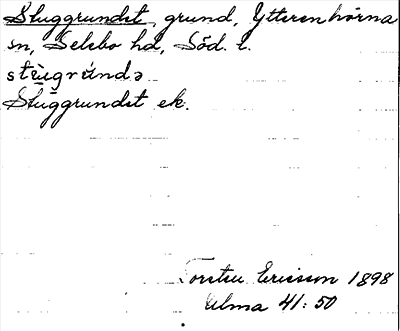 Stuggrundet, grund, Ytterenhörna
sn, Selebo hd, Söd. l.
stùgrúndə
Stuggrundet ek.
Torsten Ericsson 1898
Ulma 41:50